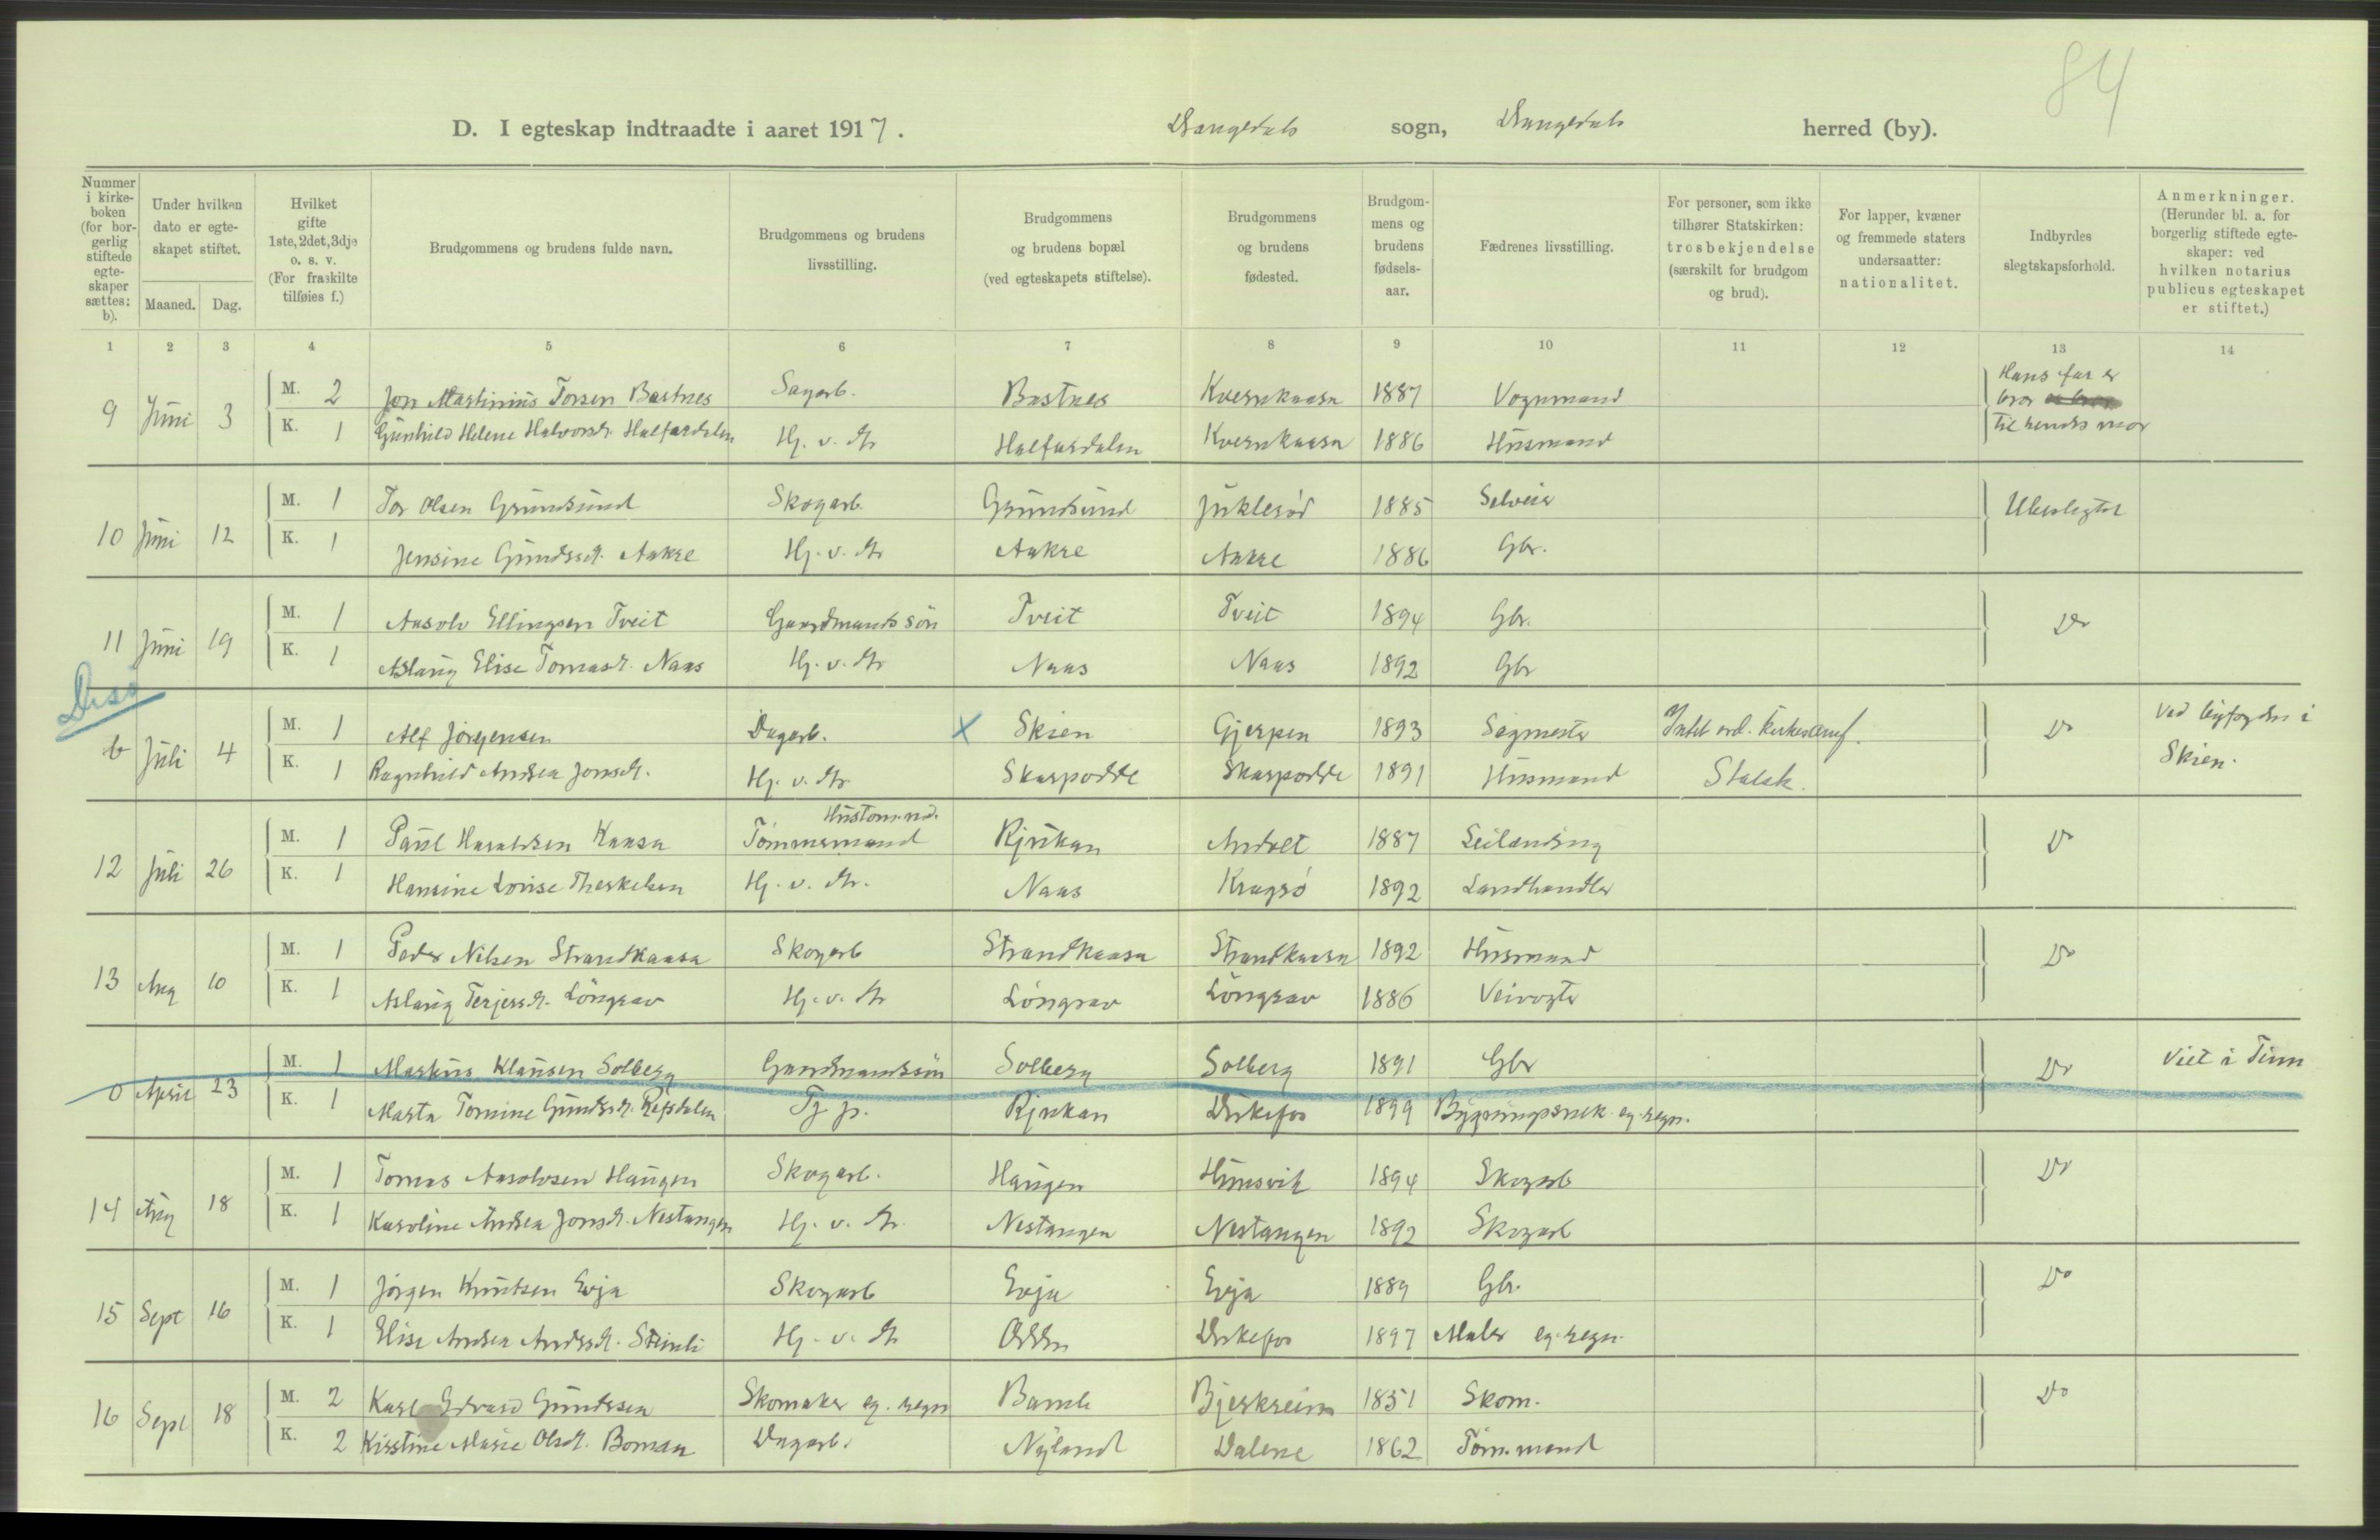 84
D. I egteskap indtraadte i aaret 1917. Drangedals sogn, Drangedals herred (by).
Nummer i kirkeboken (for borgerlig stiftede egteskaper sættes: b).
Under hvilken dato er egteskapet stiftet.
Maaned. Dag.
Hvilket gifte 1ste, 2det, 3dje o. s. v. (For fraskilte tilføies f.)
Brudgommens og brudens fulde navn.
Brudgommens og brudens livsstilling.
Brudgommens og brudens bopæl (ved egteskapets stiftelse).
Brudgommens og brudens fødested.
Brudgommens og brudens fødselsaar.
Fædrenes livsstilling.
For personer, som ikke tilhører Statskirken: trosbekjendelse (særskilt for brudgom og brud).
For lapper, kvæner og fremmede staters undersaatter: nationalitet.
Indbyrdes slegtskapsforhold.
Anmerkninger. (Herunder bl. a. for borgerlig stiftede egteskaper: ved hvilken notarius publicus egteskapet er stiftet.)
1 2 3 4 5 6 7 8 9 10 11 12 13 14
9 Juni 3 M. 2 Jon Martinius Torsen Bastnes Sagarb. Bastnes Kvernkaasa 1887 Vognmand Hans far er bror
K. 1 Gunhild Helene Halvorsd. Halfardalen Hj. v. do Halfardalen Kvernkaasa 1886 Husmand til hendes mor
10 Juni 12 M. 1 Tor Olsen Grundsund Skogarb. Grundsund Juklerød 1885 Selveier Ubeslegtet
K. 1 Jensine Gundersd. Aakre Hj. v. do Aakre Aakre 1886 Gbr.
11 Juni 19 M. 1 Aasolv Ellingsen Tveit Gaardmandssøn Tveit Tveit 1894 Gbr. Do
K. 1 Aslaug Elise Tomasd. Naas Hj. v. do Naas Naas 1892 Gbr
b Juli 4 M. 1 Alf Jørgensen Dagarb. X Skien Gjerpen 1893 Sagmester Intet ord. kirkesamf. Do Ved byfogden i
K. 1 Ragnhild Andrea Jonsd. Hj. v. do Skarpodde Skarpodde 1891 Husmand Statsk. Skien.
12 Juli 26 M. 1 Paul Haraldsen Kaasa Tømmermand Hustømmd. Rjukan 1887 Leilending Do
K. 1 Hansine Lovise Therkelsen Hj. v. do. Naas Kragerø 1892 Landhandler
13 Aug 10 M. 1 Peder Nilsen Strandkaasa Skogarb Strandkaasa Strandkaasa 1892 Husmand Do
K. 1 Aslaug Terjesd. Løngrav Hj. v. do Løngrav Løngrav 1886 Veivogter
0 April 23 M. 1 Markus Klausen Solberg Gaardmandssøn Solberg Solberg 1891 Gbr Do Viet i Tinn
K. 1 Marta Tomine Gundersd. Refsdalen Tj. p. Rjukan 1899 Bygningssnek. eg. regn.
14 Aug 18 M. 1 Tomas Aasolvsen Haugen Skogarb. Haugen 1894 Skogarb Do
K. 1 Karoline Andrea Jonsd. Nestangen Hj. v. do. Nestangen Nestangen 1892 Skogarb
15 Sept 16 M. 1 Jørgen Knutsen Evja Skogarb Evja Evja 1889 Gbr. Do
K. 1 Elise Andrea Andersd. Hj. v. do Odden 1897 Maler eg. regn.
16 Sept 18 M. 2 Karl Edvard Gundersen Skomaker eg. regn Bamle Bjerkreim 1851 Skom. Do
K. 2 Kirstine Marie Olsd. Boman Dagarb. Nyland Dalene 1862 Tømmmand